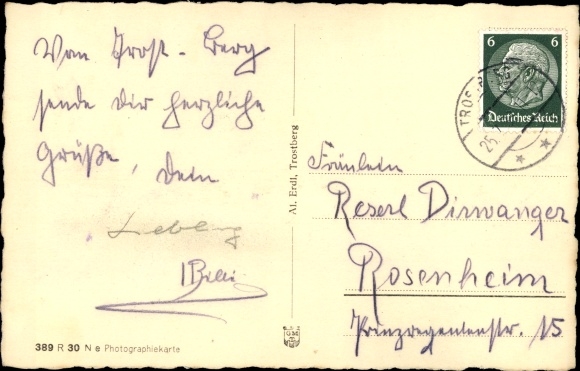 Vom Trost-berg
sende Dir herzliche
Grüße, Dein
Liebling
Billi
389 R 30 N e Photographiekarte
Al. Erdl, Trostberg
6 6
Deutsches Reich
TROS
Fräulein
Reserl Dirwanger
Rosenheim
Prinzregentenstr. 15